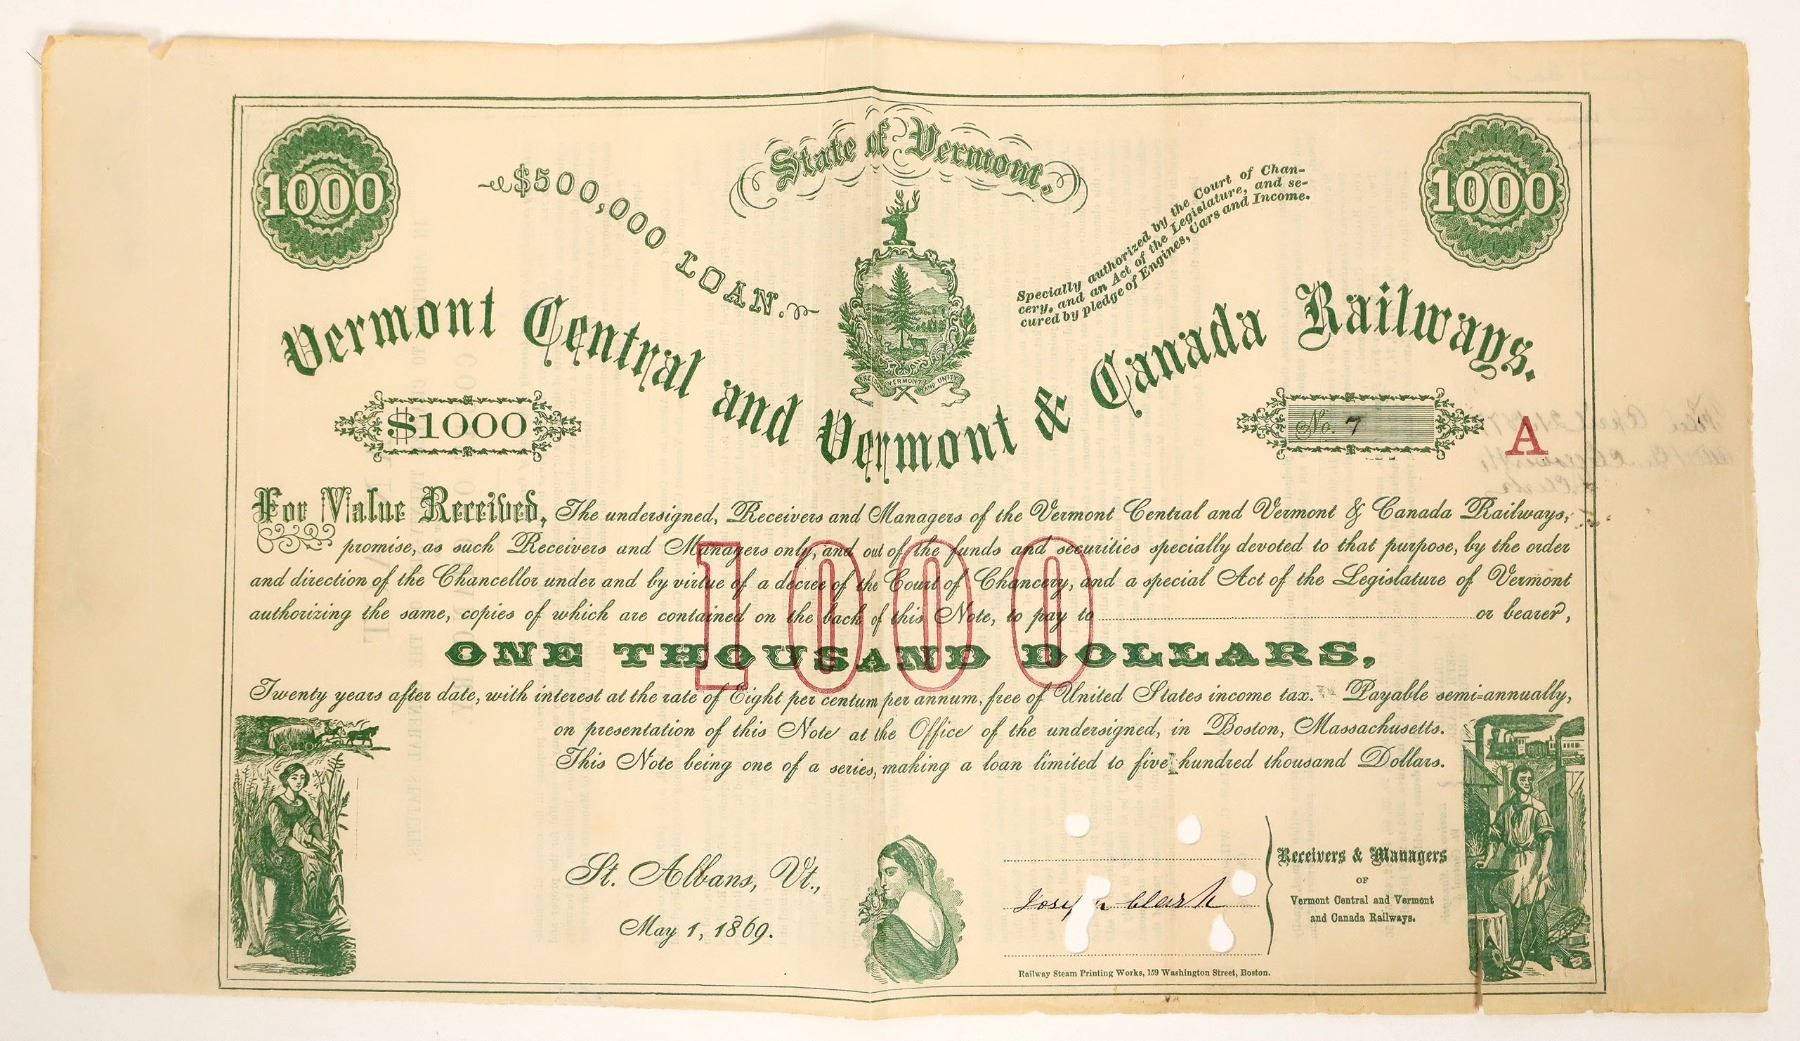 State of Vermont.
1000
$500,000 LOAN.
Specially authorized by the Court of Chan-
cery, and an Act of the Legislature, and se-
cured by pledge of Engines, Cars and Income.
1000
VERMONT AND UNITY
Vermont Central and Vermont & Canada Railways.
$1000
No. 7
A
For Value Received, The undersigned, Receivers and Managers of the Vermont Central and Vermont & Canada Railways,
promise, as such Receivers and Managers only, and out of the funds and securities specially devoted to that purpose, by the order
and direction of the Chancellor under and by virtue of a decree of the Court of Chancery, and a special Act of the Legislature of Vermont
authorizing the same, copies of which are contained on the back of this Note, to pay to or bearer,
1000
ONE THOUSAND DOLLARS,
Twenty years after date, with interest at the rate of Eight per centum per annum, free of United States income tax. Payable semi-annually,
on presentation of this Note at the Office of the undersigned, in Boston, Massachusetts.
This Note being one of a series, making a loan limited to five hundred thousand Dollars.
St. Albans, Vt.,
May 1, 1869.
Joseph Clark
Receivers & Managers
OF
Vermont Central and Vermont
and Canada Railways.
Railway Steam Printing Works, 159 Washington Street, Boston.